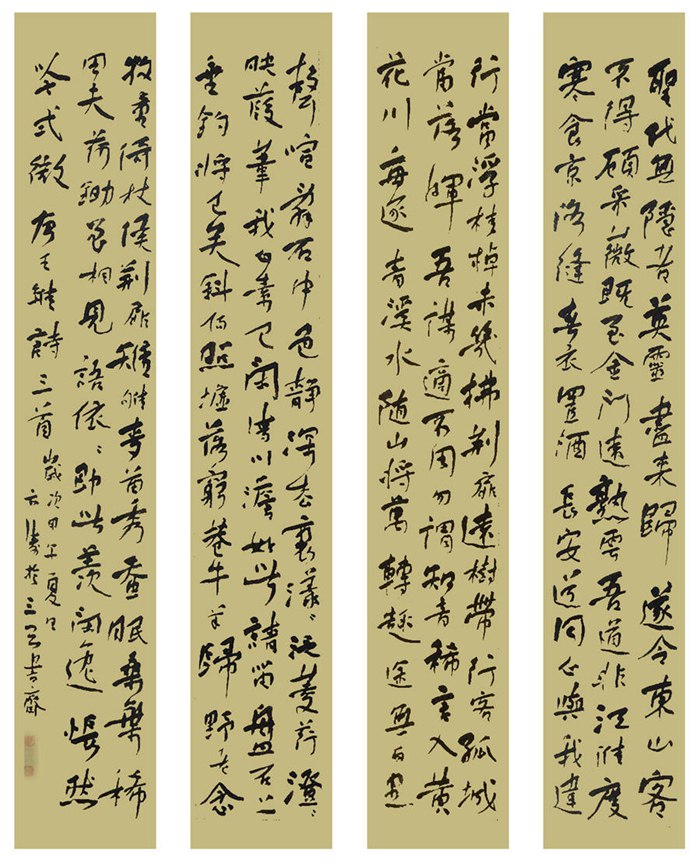 聖代無隱者英靈盡来歸遂令東山客
不得顧采薇既至金門遠熟雲吾道非江淮度
寒食京洛縫春衣置酒長安道同心與我違
行當浮桂棹未幾拂荊扉遠樹帶行客孤城
當落暉吾謀適不用勿謂知音稀言入黃
花川每逐青溪水随山將萬轉趣途無百里
聲喧亂石中色靜深松裏漾々泛菱荇澄々
映葭葦我心素已閑清川澹如此請留盤石上
垂釣將已矣斜陽照墟落窮巷牛羊歸野老念
牧童倚杖候荊扉雉雊麥苗秀蠶眠桑葉稀
田夫荷鋤至相見語依々即此羨閑逸悵然
吟式微 唐王維詩三首 歲次甲午夏月
於三 書齋